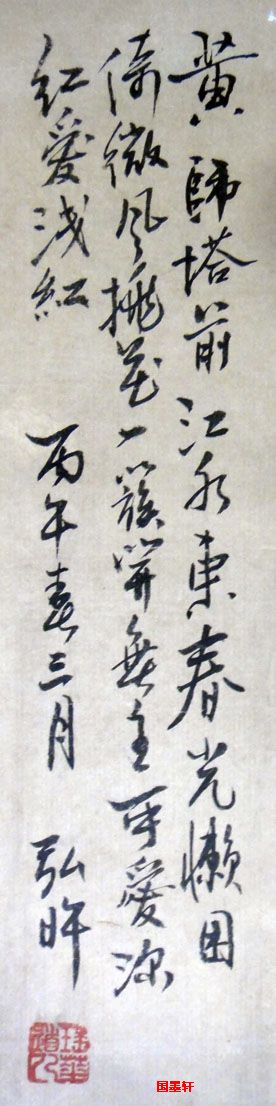 黄師塔前江水東春光懶困
倚微風桃花一簇開無主可愛深
紅愛淺紅
丙午春三月
弘旿
瑤華道人
国墨轩